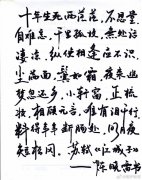 十年生死两茫茫，不思量
自难忘，千里孤坟，无处话
凄凉，纵使相逢应不识，
尘满面，鬓如霜。夜来幽
梦忽还乡，小轩窗，正梳
妆，相顾无言，唯有泪千行，
料得年年断肠处，明月夜
短松冈。苏轼《江城子》